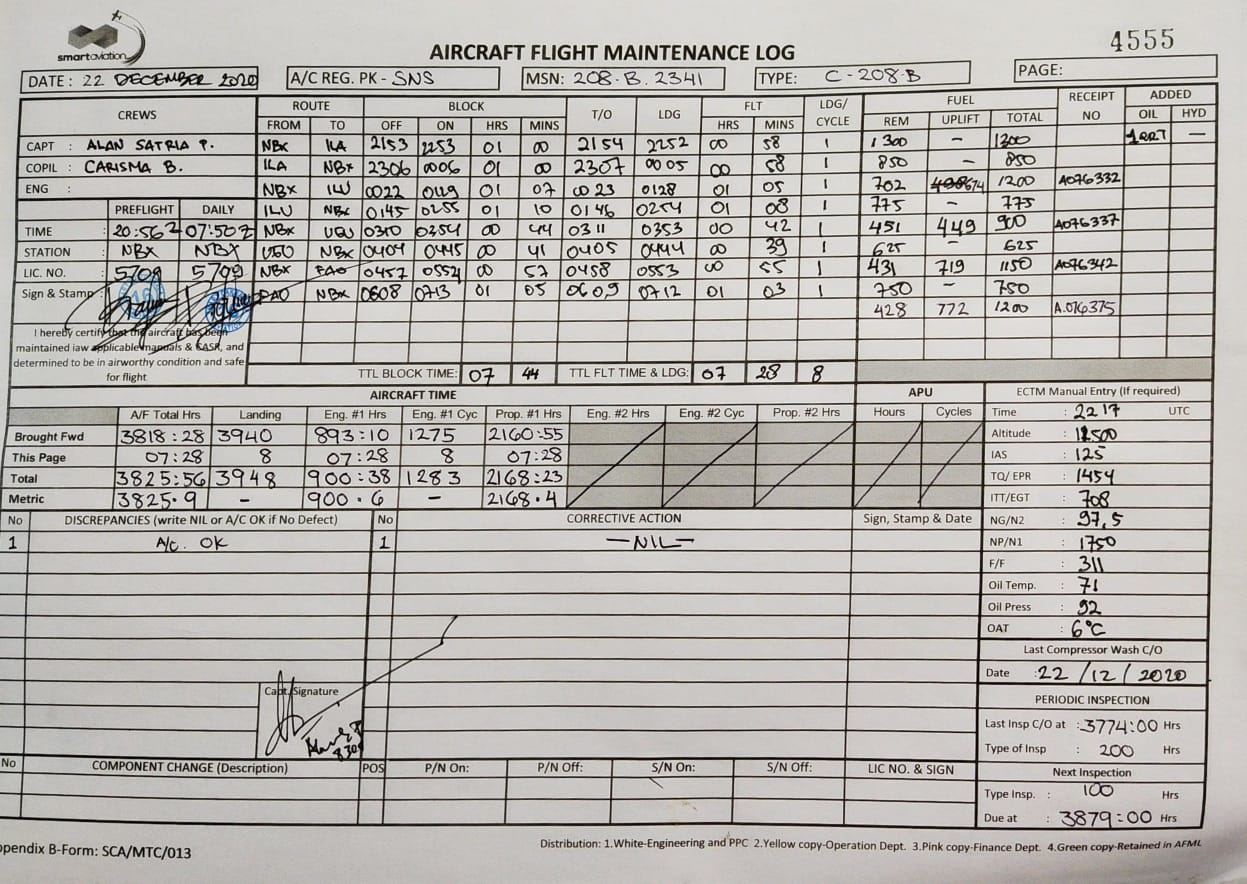 smartaviation
4555
AIRCRAFT FLIGHT MAINTENANCE LOG
DATE : 22 DECEMBER 2020 A/C REG. PK - SNS MSN: 208.B.2341 TYPE: C-208-B PAGE:
CREWS ROUTE BLOCK T/O LDG FLT LDG/ CYCLE FUEL RECEIPT NO ADDED
FROM TO OFF ON HRS MINS HRS MINS REM UPLIFT TOTAL OIL HYD
CAPT : ALAN SATRIA P. NBX ILA 2153 2253 01 00 2154 2252 00 58 1 1300 - 1300 1QRT -
COPIL : CARISMA B. ILA NBX 2306 0006 01 00 2307 0005 00 58 1 850 - 850
ENG : NBX ILU 0022 0129 01 07 0023 0128 01 05 1 702 674 1200 A076332
PREFLIGHT DAILY ILU NBX 0145 0255 01 10 0146 0254 01 08 1 775 - 775
TIME : 20:56Z 07:50Z NBX UGU 0310 0354 00 44 0311 0353 00 42 1 451 449 900 A076337
STATION : NBX NBX UGU NBX 0404 0445 00 41 0405 0444 00 39 1 625 - 625
LIC. NO. : 5709 5799 NBX FAO 0457 0554 00 57 0458 0553 00 55 1 431 719 1150 A076342
Sign & Stamp : FAO NBX 0608 0713 01 05 0609 0712 01 03 1 750 - 750
428 772 1200 A.076375
I hereby certify that the aircraft has been
maintained iaw applicable manuals & CASR, and
determined to be in airworthy condition and safe
for flight
TTL BLOCK TIME: 07 44 TTL FLT TIME & LDG: 07 28 8
AIRCRAFT TIME APU
A/F Total Hrs Landing Eng. #1 Hrs Eng. #1 Cyc Prop. #1 Hrs Eng. #2 Hrs Eng. #2 Cyc Prop. #2 Hrs Hours Cycles
Brought Fwd 3818:28 3940 893:10 1275 2160:55
This Page 07:28 8 07:28 8 07:28
Total 3825:56 3948 900:38 1283 2168:23
Metric 3825.9 - 900.6 - 2168.4
ECTM Manual Entry (If required)
Time : 2217 UTC
Altitude : 12500
IAS : 125
TQ/ EPR : 1454
ITT/EGT : 708
NG/N2 : 97,5
NP/N1 : 1750
F/F : 311
Oil Temp. : 71
Oil Press : 92
OAT : 6°C
Last Compressor Wash C/O
Date : 22 / 12 / 2020
PERIODIC INSPECTION
Last Insp C/O at : 3774:00 Hrs
Type of Insp : 200 Hrs
Next Inspection
Type Insp. : 100 Hrs
Due at : 3879:00 Hrs
No DISCREPANCIES (write NIL or A/C OK if No Defect) No CORRECTIVE ACTION Sign, Stamp & Date
1 A/C. OK 1 -NIL-
Capt. Signature
No COMPONENT CHANGE (Description) POS P/N On: P/N Off: S/N On: S/N Off: LIC NO. & SIGN
ppendix B-Form: SCA/MTC/013
Distribution: 1.White-Engineering and PPC 2.Yellow copy-Operation Dept. 3.Pink copy-Finance Dept. 4.Green copy-Retained in AFML